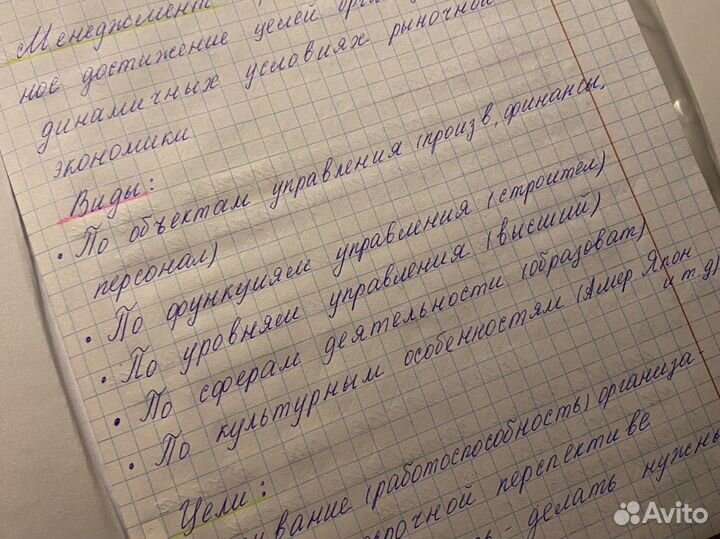 Менеджмент
ное достижение целей орга
динамичных условиях рыночной
экономики
Виды:
• По объектам управления (произв, финансы,
персонал)
• По функциям управления (строител)
• По уровням управления (высший)
• По сферам деятельности (образоват)
• По культурным особенностям (Амер Япон
и т.д)
Цели:
вание (работоспособность) организа-
срочной перспективе
- делать нужны
Avito